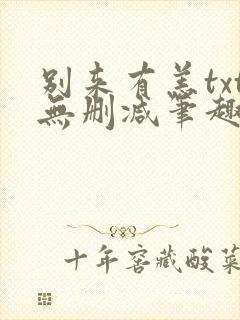 别来有恙txt
無删减笔趣
十年窖藏酸菜